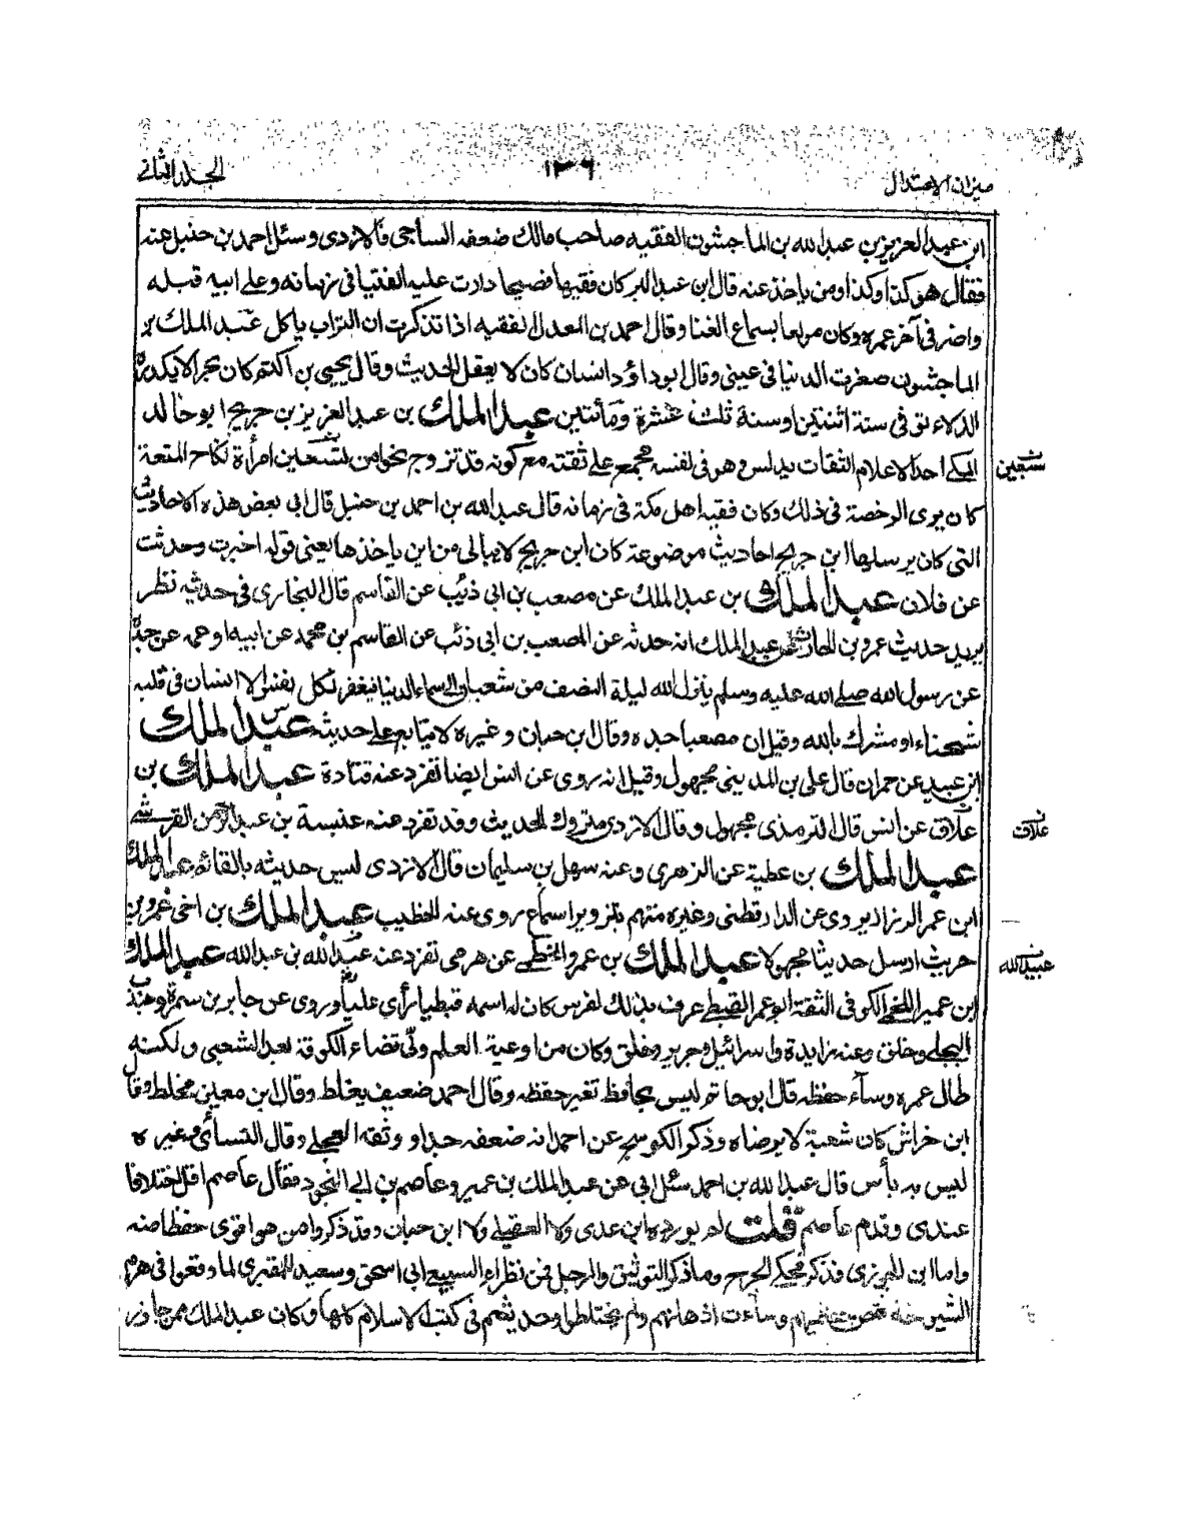 ميزان الاعتدال
١٣٦
الجلد الثانى
ابن عبد العزيز بن عبد الله بن الماجشون الفقيه صاحب مالك ضعفه الساجى والازدى وسئل احمد بن حنبل عنه
فقال هو كذا وكذا ومن ياخذ عنه قال ابن عبد البر كان فقيها فصيحا دارت عليه الفتيا فى زمانه وعلى ابيه قبله
واضر فى آخر عمره وكان مولعا بسماع الغنا وقال احمد بن المعدل الفقيه اذا تذكرت ان التراب ياكل عبد الملك بن
الماجشون صغرت الدنيا فى عينى وقال ابو داؤد انسان كان لا يعقل الحديث وقال يحيى بن اكثم كان بحرا لا يكدره
الدلاء توفى سنة اثنتين او سنة ثلث عشرة ومأتين عبد الملك بن عبد العزيز بن جريج ابو خالد
المكى احد الاعلام الثقات يدلس وهو فى نفسه مجمع على ثقته مع كونه قد تزوج نحوا من تسعين امرأة نكاح المتعة
سبعين
كان يرى الرخصة فى ذلك وكان فقيه اهل مكة فى زمانه قال عبد الله بن احمد بن حنبل قال ابى بعض هذه الاحاديث
التى كان يرسلها ابن جريج احاديث موضوعة كان ابن جريج لا يبالى من اين ياخذها يعنى قوله اخبرت وحدثت
عن فلان عبد الملك بن عبد الملك عن مصعب بن ابى ذئب عن القاسم قال البخارى فى حديثه نظر
يريد حديث عمرو بن الحارث عن عبد الملك انه حدثه عن المصعب بن ابى ذئب عن القاسم بن محمد عن ابيه او عمه عن جده
عن رسول الله صلى الله عليه وسلم ينزل الله ليلة النصف من شعبان الى السماء الدنيا فيغفر لكل نفس الا انسان فى قلبه
شحناء او مشرك بالله وقيل ان مصعبا جده وقال ابن حبان وغيره لا يتابع على حديثه عبد الملك
ابن عبيد عن حمران قال على بن المدينى مجهول وقيل انه روى عن انس ايضا تفرد عنه قتادة عبد الملك بن
علاق عن انس قال الترمذى مجهول وقال الازدى متروك الحديث وقد تفرد عنه عنبسة بن عبد الرحمن القرشى
علاق
عبد الملك بن عطية عن الزهرى وعنه سهل بن سليمان قال الازدى ليس حديثه بالقائم عبد الملك
ابن عمر الرزاز يروى عن الدارقطنى وغيره متهم بتزوير اسماع روى عنه الخطيب عبد الملك بن اخى عمرو بن
حريث ارسل حديثا مجهولا عبد الملك بن عمرو الخطمى عن هرمى تفرد عنه عبد الله بن عبد الله عبد الملك
عبيد الله
ابن عمير اللخمى الكوفى الثقة ابو عمر القبطى عرف بذلك لفرس كان له اسمه قبطيا رأى عليا وروى عن جابر بن سمرة وجندب
البجلى وخلق وعنه زايدة واسرائيل وجرير وخلق وكان من اوعية العلم ولى قضاء الكوفة بعد الشعبى ولكنه
طال عمره وسآء حفظه قال ابو حاتم ليس بحافظ تغير حفظه وقال احمد ضعيف يغلط وقال ابن معين مخلط وقال
ابن خراش كان شعبة لا يرضاه وذكر الكوسج عن احمد انه ضعفه جدا ووثقه العجلى وقال النسائى وغيره
ليس به بأس قال عبد الله بن احمد سئل ابى عن عبد الملك بن عمير وعاصم بن ابى النجود فقال عاصم اقل اختلافا
عندى وقدم عاصم قلت لم يورده ابن عدى ولا العقيلى ولا ابن حبان وقد ذكروا من هو اقوى حفظا منه
واما ابن الجوزى فذكره فحكى الجرح وما ذكر التوثيق والرجل فمن نظراء السبيعى ابى اسحق وسعيد المقبرى لما وقعوا فى هرم
الشيوخة نقص حفظهم وسآءت اذهانهم ولم يختلطوا وحديثهم فى كتب الاسلام كلها وكان عبد الملك ممن جاوز